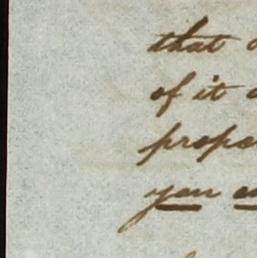 that
of it
propo
you